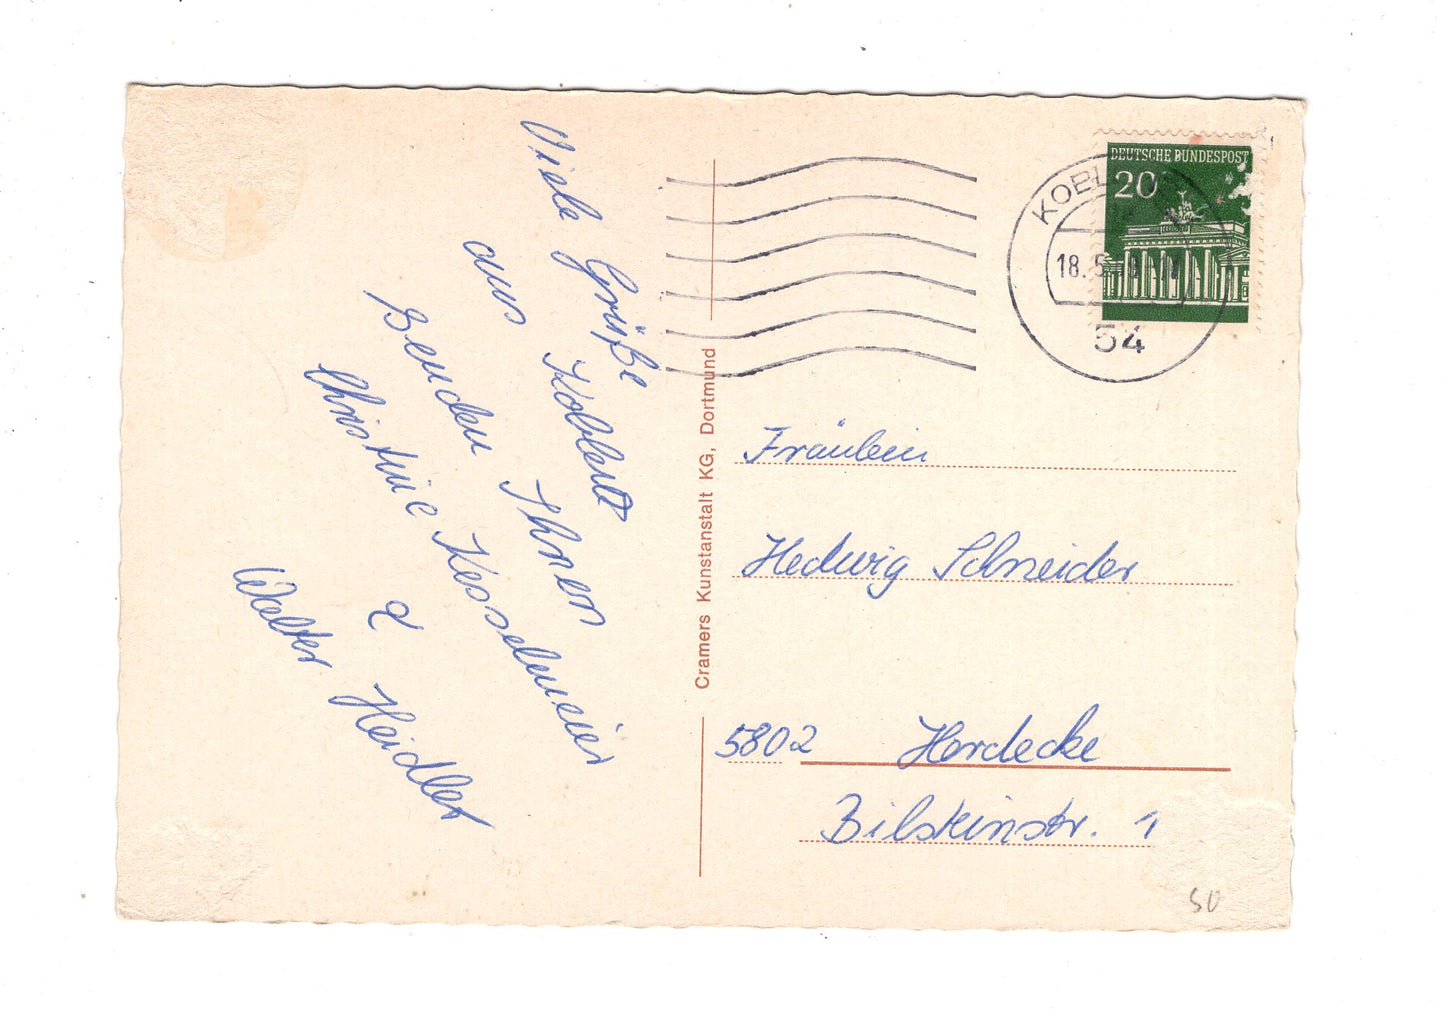 Viele Grüße
aus Koblenz
senden Ihnen
Christine Kesselmeier
&
Walter Heidler
Cramers Kunstanstalt KG, Dortmund
DEUTSCHE BUNDESPOST
20
18.5
54
Fräulein
Hedwig Schneider
5802 Herdecke
Bilsteinstr. 1
50